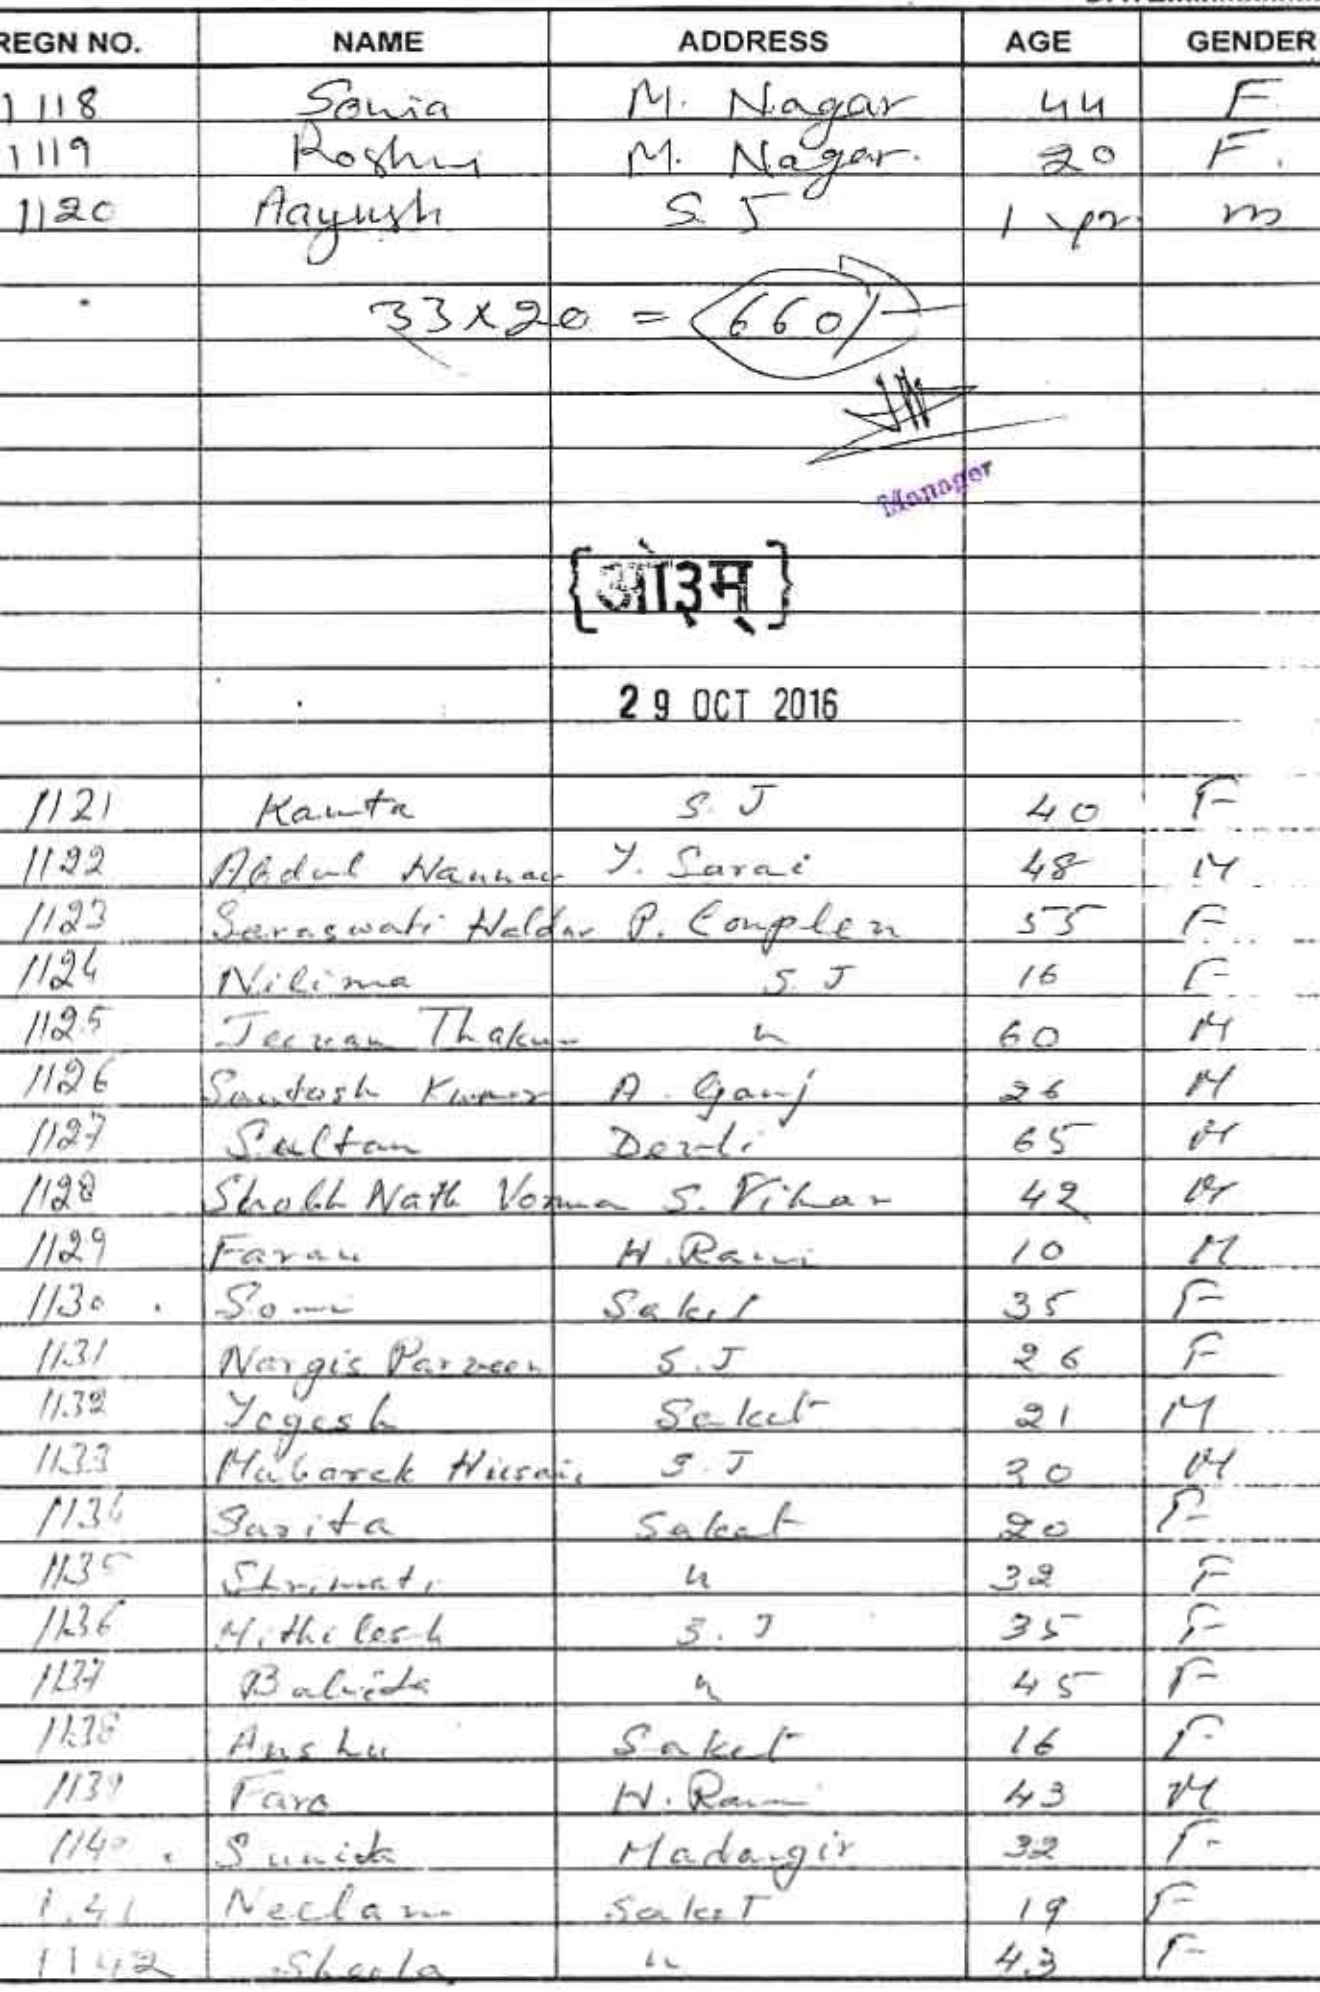 REGN NO. NAME ADDRESS AGE GENDER
1118 Sonia M. Nagar 44 F
1119 Roshni M. Nagar. 20 F.
1120 Aayush S J 1 yr m
33x20 = 660/-
Manager
{ओ३म्}
29 OCT 2016
1121 Kamta S. J 40 F
1122 Abdul Hannan Y. Sarai 48 M
1123 Saraswati Haldar P. Complex 55 F
1124 Nilima S. J 16 F
1125 Jeevan Thakur " 60 M
1126 Santosh Kumar A. Ganj 26 M
1127 Sultan Deoli 65 M
1128 Shobh Nath Verma S. Vihar 42 M
1129 Farau H. Rani 10 M
1130 Soni Saket 35 F
1131 Nargis Parveen S. J 26 F
1132 Yogesh Saket 21 M
1133 Mubarak Husain S. J 30 M
1134 Sarita Saket 20 F
1135 Shrimati " 32 F
1136 Mithilesh S. J 35 F
1137 " 45 F
1138 Anshu Saket 16 F
1139 Faro H. Rani 43 M
1140 Sunita Madangir 32 F
1141 Neelam Saket 19 F
1142 Sheela " 43 F